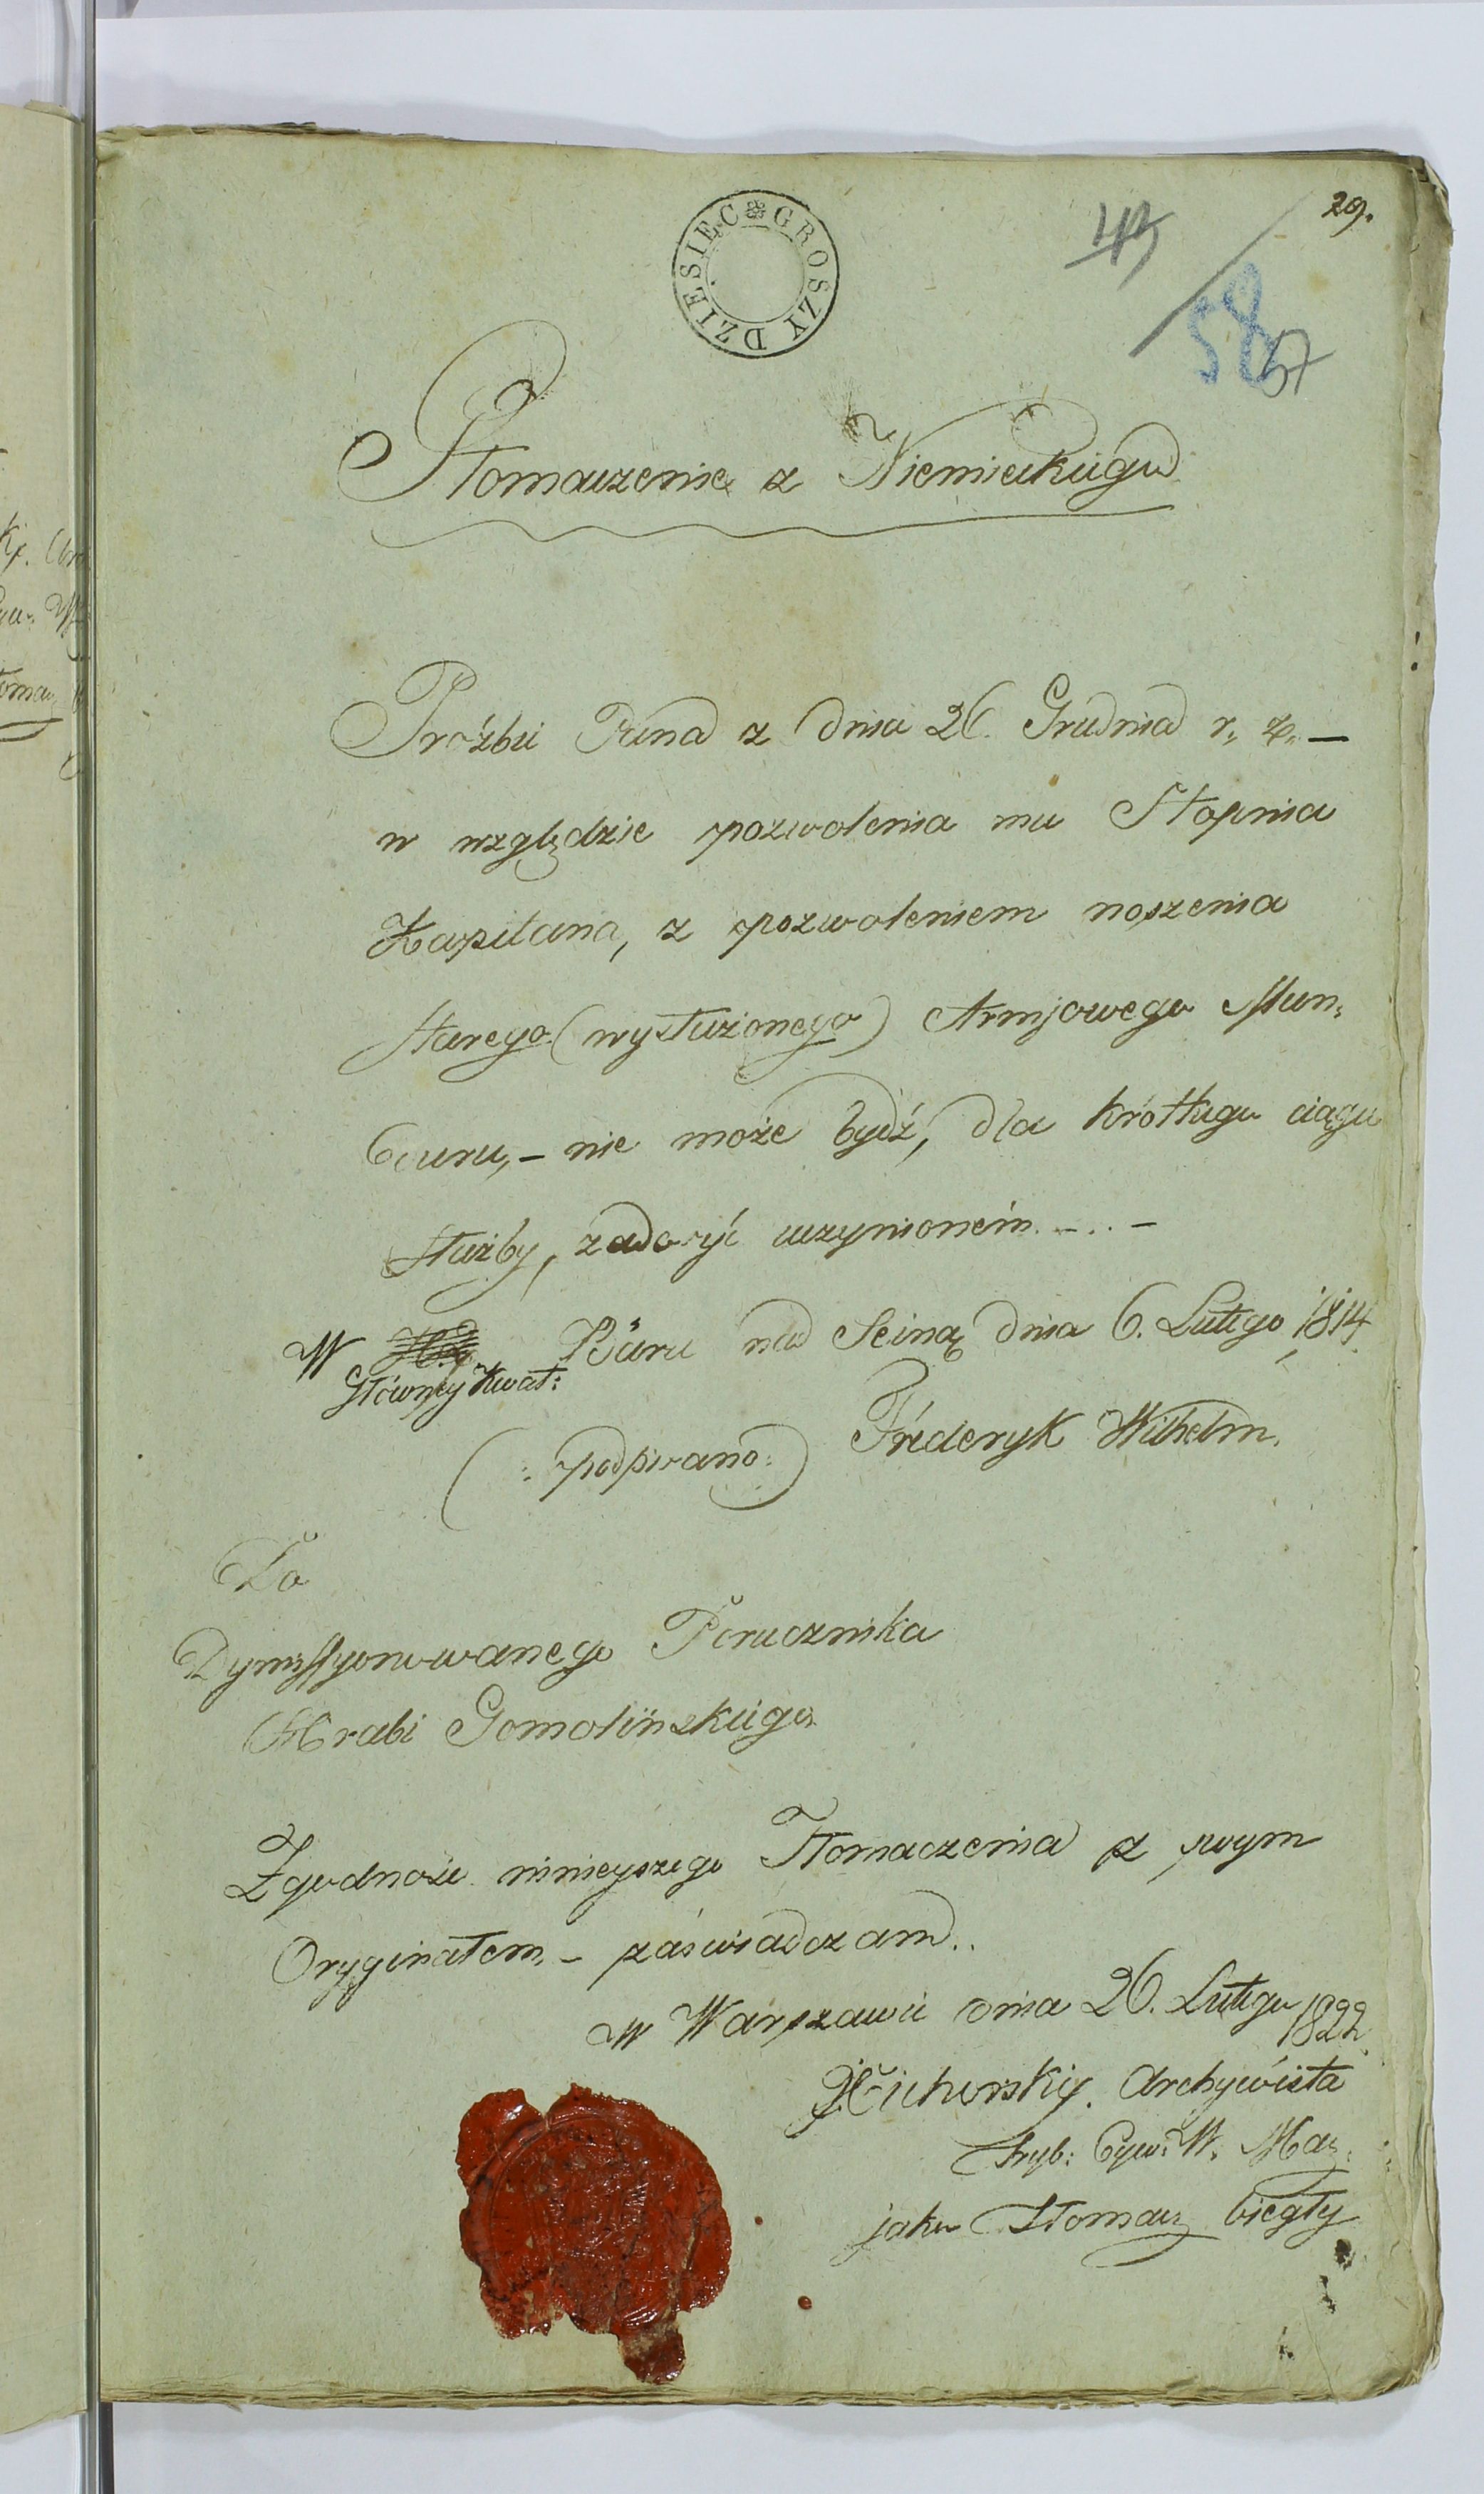 29.
43
58
57
DZIESIĘC GROSZY
Tłomaczenie z Niemieckiego
Proźbie Pana z dnia 26. Grudnia r. z. —
w względzie pozwolenia mu Stopnia
Kapitana, z pozwoleniem noszenia
Starego (wysłużonego) Armjowego Mun-
duru, – nie może bydź, dla krótkiego ciągu
służby, zadosyć uczynioném. – . . –
W Główney Kwat: Bàru nad Seiną dnia 6. Lutego 1814.
(: podpisano :) Friderÿk Wilhelm.
Do
Dymissyonowanego Porucznika
Hrabi Gomolińskiego
Zgodność ninieyszego Tłomaczenia z swym
Oryginałem, – zaświadczam..
w Warszawie dnia 26. Lutego 1822.
Cichorski. Archywista
Tryb: Cyw: W. Maz:
jako Tłomacz biegły